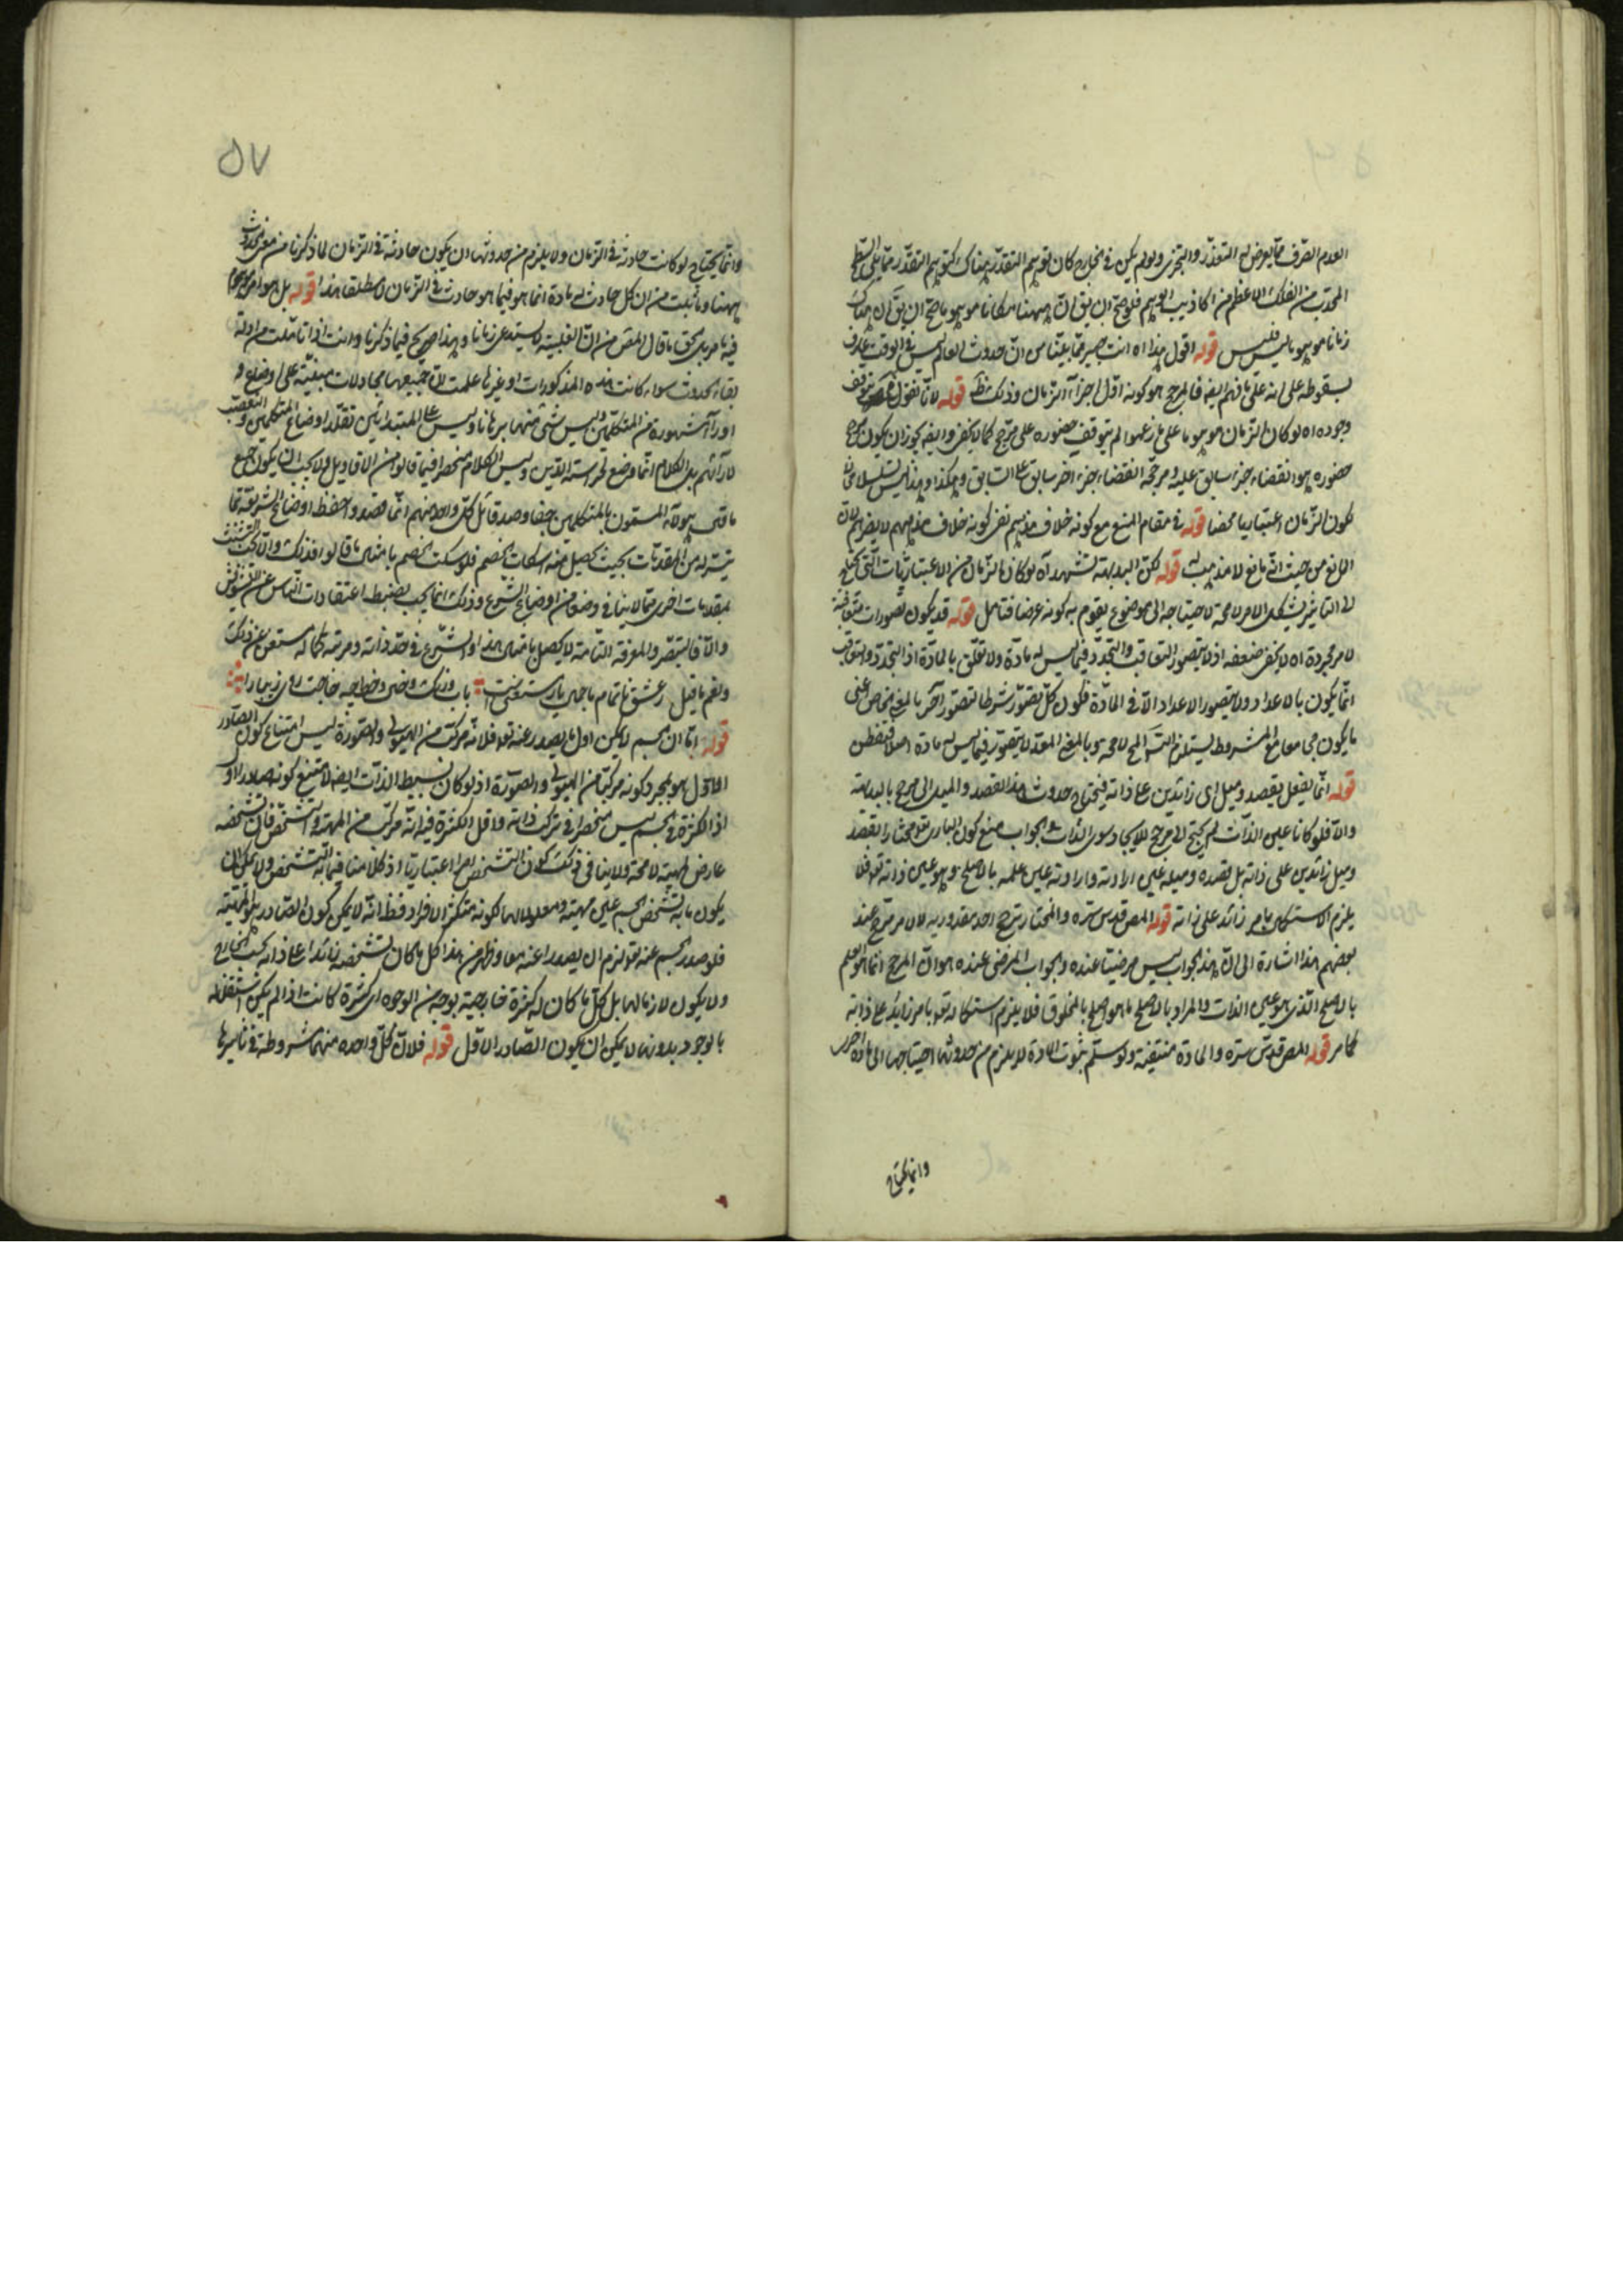 العدم الصرف مما يعرض له التقدر والتجزى ولو لم يكن فى الخارج كان توهم التقدر هناك كتوهم التقدر مما يلى السطح
المحدب من الفلك الاعظم من اكاذيب الوهم فلو صح ان يق ان ههنا مكانا موهوما صح ان يق ان هناك
زمانا موهوما ليس فليس قوله اقول هذا اه انت خبير مما بينا من ان حدوث العالم ليس فى الوقت عارف
بسقوطه على انه على ما فهم ايض فالمرجح هو كونه اول اجزآء الزمان وذلك ظ قوله لانا نقول يتوقف
وجوده اه لو كان الزمان موهوما على ما زعموا لم يتوقف حضوره على مرجح كما لا يخفى وايض يجوز ان يكون مرجح
حضوره هو انقضاء جزء سابق عليه ومرجح انقضاء جزء اخر سابق على السابق وهكذا وهذا ليس تسلسلا محالا
لكون الزمان اعتباريا محضا قوله فى مقام المنع مع كونه خلاف مذهبهم نفس كونه خلاف مذهبهم لا يضرهم لان
المانع من حيث انه مانع لا مذهب له قوله لكن البديهة تشهد آه لو كان الزمان من الاعتباريات التى تحتاج
الى التاثير يشكل الامر لا محة لاحتياجه الى موضوع يقوم به كونه عرضا فتامل قوله قد يكون تصورات متعاقبة
لامر مجردة اه لا يخفى ضعفه اذ لا يتصور التعاقب والتجدد فيما ليس له مادة ولا تعلق بالمادة اذ التجدد والتعاقب
انما يكون بالاعداد ولا يتصور الاعداد الا فى المادة فكون كل تصور شرطا لتصور آخر بالمعنى الخاص اعنى
ما يكون مجامعا مع المشروط يستلزم التس المح لا محة وبالمعنى المعد لا يتصور فيما ليس له مادة اصلا فتفطن
قوله انما يفعل بقصد وميل اى زائدين على ذاته فيحتاج حدوث هذا القصد والميل الى مرجح بالبداهة
والا فلو كانا عين الذات لم يحتج الى مرجح للايجاد سوى الذات والجواب منع كون البارى تع مختارا بقصد
وميل زائدين على ذاته بل قصده وميله عين ارادته وارادته عين علمه بالاصلح وهو عين ذاته تع فلا
يلزم الاستكمال بامر زائد على ذاته قوله المص قدس سره والمختار يترجح احد مقدوريه لا لامر مرجح عند
بعضهم هذا اشارة الى ان هذا الجواب ليس مرضيا عنده والجواب المرضى عنده هو ان المرجح انما هو العلم
بالاصلح الذى هو عين الذات والمراد بالاصلح ما هو اصلح بالمخلوق فلا يلزم استكماله تع بامر زايد على ذاته
كما مر قوله المص قدس سره والمادة منتفية ولو سلم ثبوت المادة لا يلزم من حدوثها احتياجها الى مادة اخرى
وانما يحتاج
٥٧
وانما يحتاج لو كانت حادثة فى الزمان ولا يلزم من حدوثها ان يكون حادثة فى الزمان لما ذكرنا من معنى الحدوث
ههنا وما ثبت من ان كل حادث له مادة انما هو فيما هو حادث فى الزمان لا مطلقا هذا قوله بل هو امر
فيه ما مر بل الحق ما قال المص من ان القبلية لا يستدعى زمانا وهذا صريح فيما ذكرنا وانت اذا تاملت من ادلة
نفاة الحدوث سواء كانت هذه المذكورات او غيرها علمت ان جميعها مجادلات مبنية على اوضاع و
آورآء مشهورة من المتكلمين وليس شئ منها برهانا وليس على المبتدائين تقلد اوضاع المتكلمين والتعصب
لآرآئهم بل الكلام انما وضع لحراسة الدين وليس الكلام منحصرا فيما قالوا من الاقاويل ولا يجب ان يكون جميع
ما قال هؤلآء المسمون بالمتكلمين حقا وصدقا بل كل واحد منهم انما قصدوا حفظ اوضاع الشريعة بما
تيسر له من المقدمات بحيث يحصل منه اسكات الخصم فلو سكت الخصم بامثال ما قالوا فذلك والا يجب التشبث
بمقدمات اخرى مما لا ينافى وضعا من اوضاع الشرع وذلك انما يجب لضبط اعتقادات الناس عن التشويش
والا فالتبصر والمعرفة التامة لا يحصل بامثال هذا والشرع فى حد ذاته ومرتبة كماله مستغن عن ذلك
ونعم ما قيل زعشق ناتمام ما جمال يار مستغنى است بآب ورنك وخال وخط چه حاجت روى زيبا را
قوله اما ان الجسم لا يمكن اول ما يصدر عنه تع فلانه مركب من الهيولى والصورة ليس امتناع كون الصادر
الاول هو الجسم بمجرد كونه مركبا من الهيولى والصورة اذ لو كان بسيط الذات ايضا لامتنع كونه صادرا اول
اذ الكثرة فى الجسم ليس منحصرا فى تركب ذاته واقل الكثرة فيه انه مركب من المهية والتشخص فان تشخصه
عارض لمهيته لا محة ولا ينافى ذلك كون التشخص امرا اعتباريا اذ كلامنا فيما به التشخص ولا يمكن ان
يكون ما به تشخص الجسم عين مهيته ومعلولا لها لكونه متكثر الافراد فظ انه لا يمكن كون الصادر هو المهية
فلو صدر الجسم عنه تع لزم ان يصدرا عنه معا وظهر من هذا كل ما كان تشخصه زائدا على ذاته بحسب الخارج
ولا يكون لازما لها بل كل ما كان له كثرة خارجية بوجه من الوجوه اى كثرة كانت اذا لم يكن مستقلة
بالوجود بدونها لا يمكن ان يكون الصادر الاول قوله فلان كل واحدة منهما مشروطة فى تاثيرها